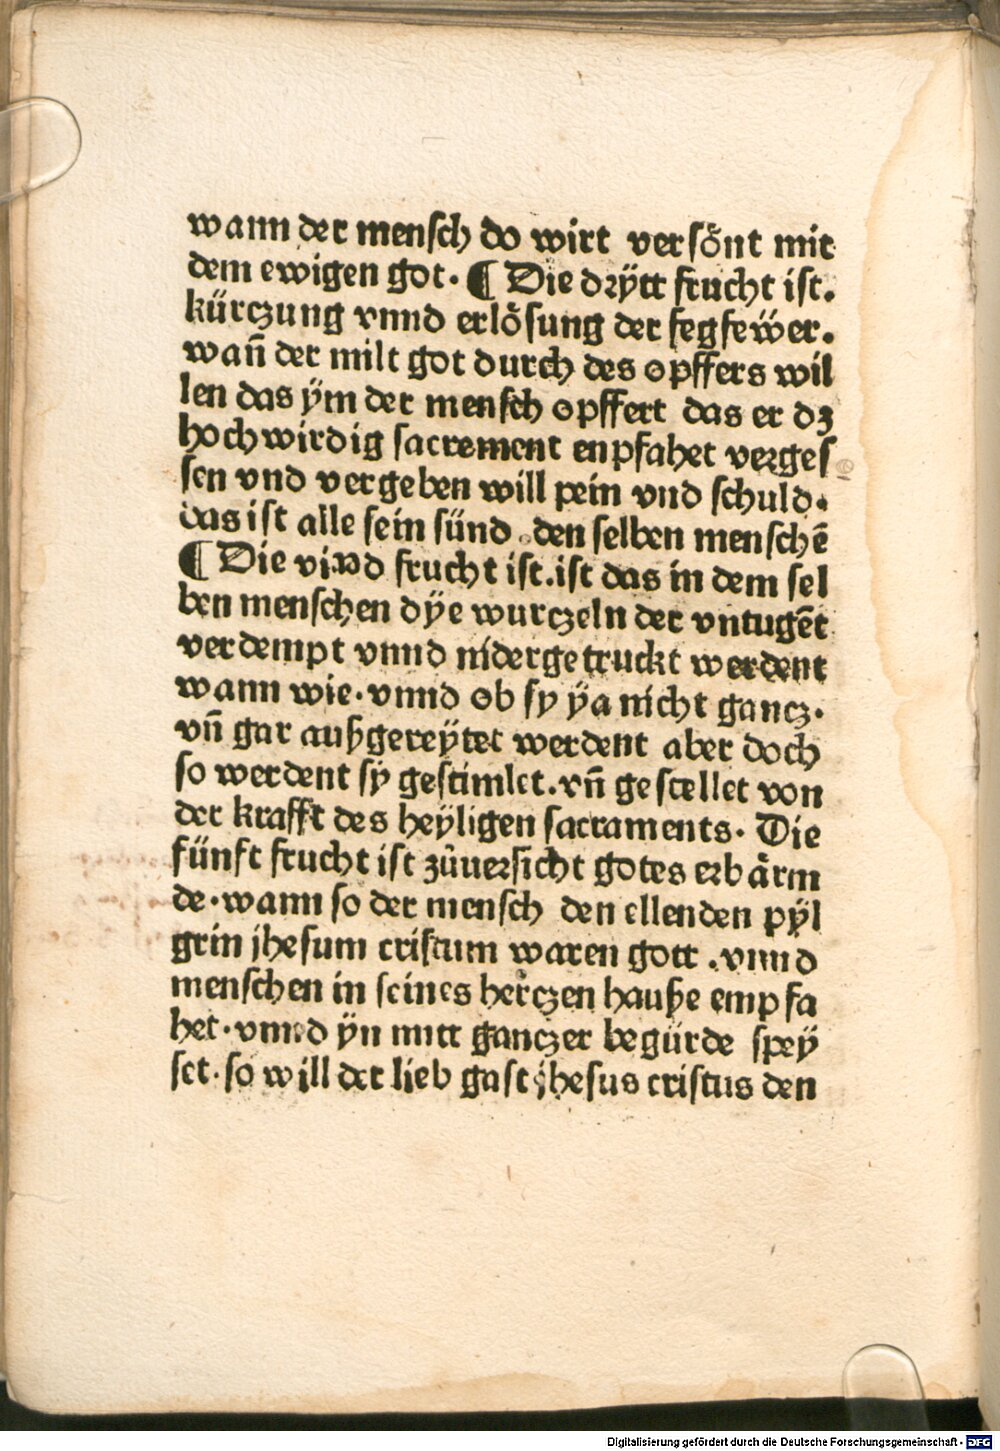 wann der mensch do wirt versönt mit
dem ewigen got. ¶ Die drÿtt frucht ist.
kürczung vnnd erlösung der fegfeẅer.
wañ der milt got durch des opffers wil
len das ÿm der mensch opffert das er dz
hochwirdig sacrement enpfahet verges
sen vnd vergeben will pein vnd schuld.
das ist alle sein sünd .den selben menschē
¶ Die vierd frucht ist.ist das in dem sel
ben menschen dÿe wurczeln der vntugēt
verdempt vnnd nidergetruckt werdent
wann wie.vnnd ob sy ÿa nicht gancz.
vñ gar außgereÿtet werdent aber doch
so werdent sÿ gestimlet.vñ gestellet von
der krafft des heÿligen sacraments. Die
fünft frucht ist zůuersicht gotes erbärm
de.wann so der mensch den ellenden pÿl
grin jhesum cristum waren gott .vnnd
menschen in seines herczen hauße empfa
het.vnnd ÿn mitt ganczer begürde speÿ
set.so will der lieb gast jhesus cristus den
Digitalisierung gefördert durch die Deutsche Forschungsgemeinschaft - DFG